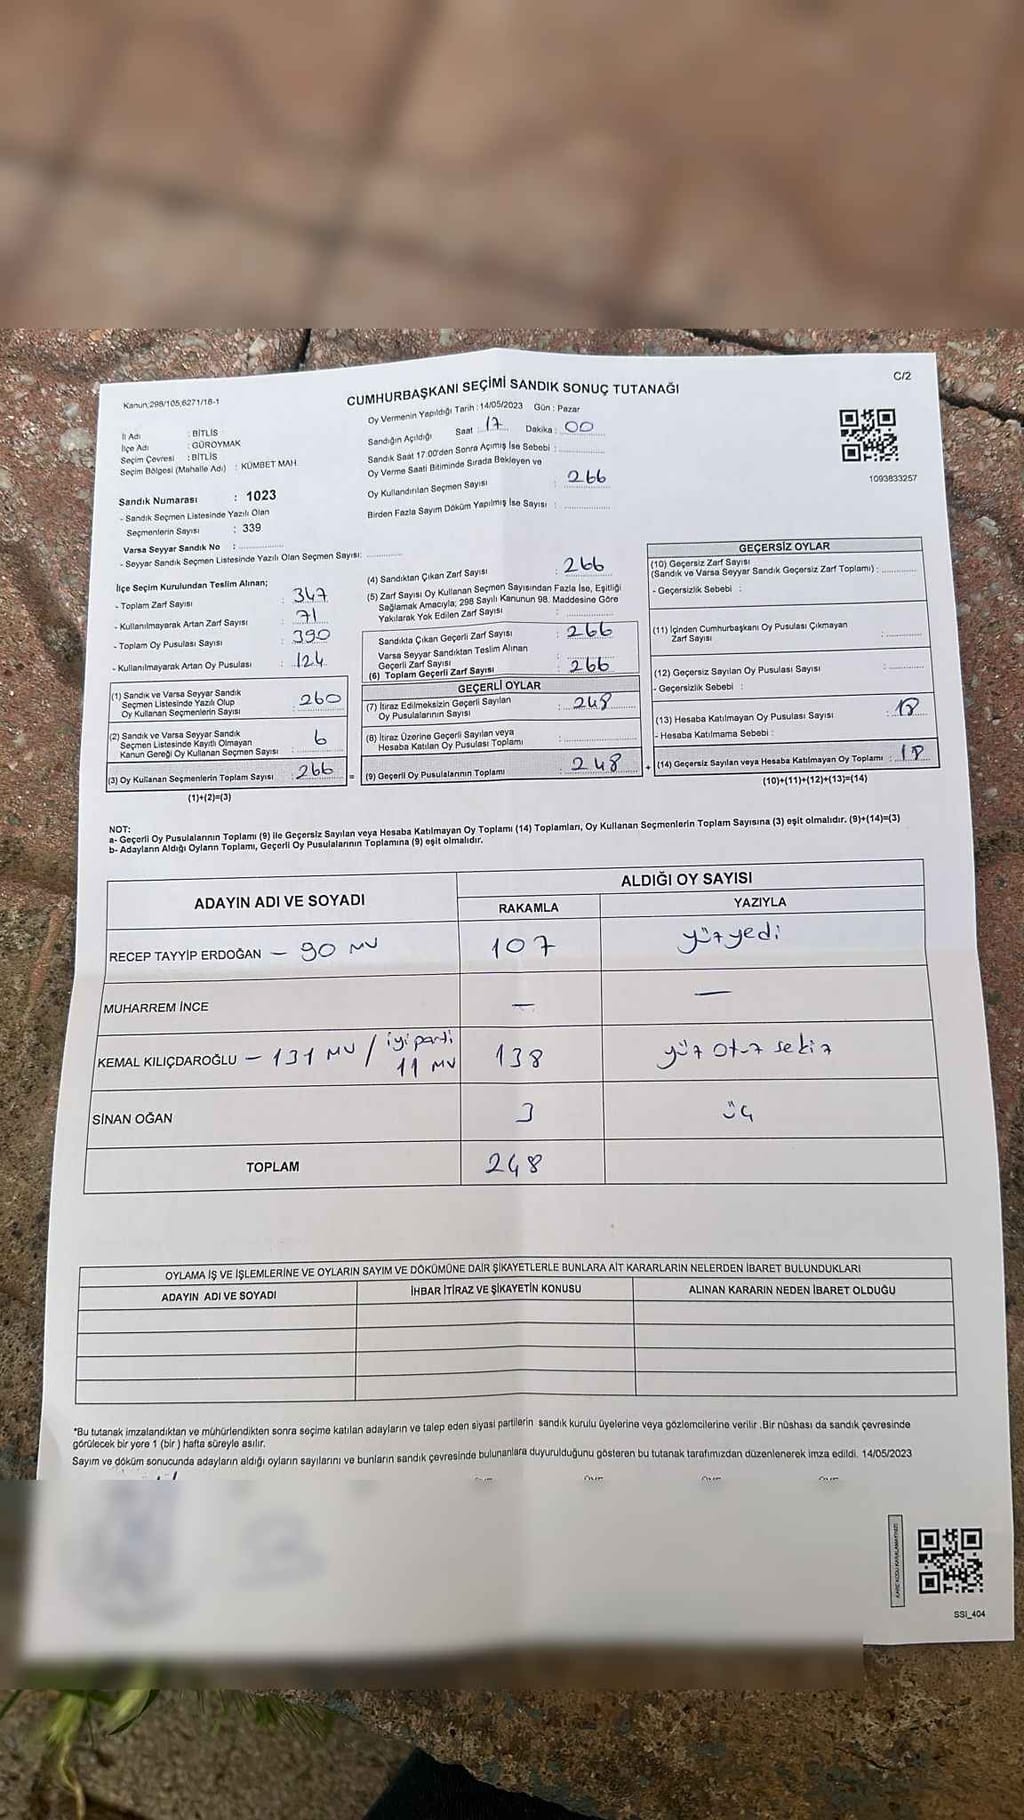 C/2
Kanun:298/105,6271/18-1
CUMHURBAŞKANI SEÇİMİ SANDIK SONUÇ TUTANAĞI
İl Adı : BİTLİS
İlçe Adı : GÜROYMAK
Seçim Çevresi : BİTLİS
Seçim Bölgesi (Mahalle Adı) : KÜMBET MAH.
Sandık Numarası : 1023
- Sandık Seçmen Listesinde Yazılı Olan
Seçmenlerin Sayısı : 339
Varsa Seyyar Sandık No :
- Seyyar Sandık Seçmen Listesinde Yazılı Olan Seçmen Sayısı:
Oy Vermenin Yapıldığı Tarih : 14/05/2023 Gün : Pazar
Sandığın Açıldığı Saat : 17 Dakika : 00
Sandık Saat 17.00'den Sonra Açımış İse Sebebi :
Oy Verme Saati Bitiminde Sırada Bekleyen ve
Oy Kullandırılan Seçmen Sayısı : 266
Birden Fazla Sayım Döküm Yapılmış İse Sayısı :
1093833257
İlçe Seçim Kurulundan Teslim Alınan;
- Toplam Zarf Sayısı : 347
- Kullanılmayarak Artan Zarf Sayısı : 71
- Toplam Oy Pusulası Sayısı : 390
- Kullanılmayarak Artan Oy Pusulası : 124
(1) Sandık ve Varsa Seyyar Sandık
Seçmen Listesinde Yazılı Olup
Oy Kullanan Seçmenlerin Sayısı : 260
(2) Sandık ve Varsa Seyyar Sandık
Seçmen Listesinde Kayıtlı Olmayan
Kanun Gereği Oy Kullanan Seçmen Sayısı : 6
(3) Oy Kullanan Seçmenlerin Toplam Sayısı : 266 =
(1)+(2)=(3)
(4) Sandıktan Çıkan Zarf Sayısı : 266
(5) Zarf Sayısı Oy Kullanan Seçmen Sayısından Fazla İse, Eşitliği
Sağlamak Amacıyla; 298 Sayılı Kanunun 98. Maddesine Göre
Yakılarak Yok Edilen Zarf Sayısı :
Sandıkta Çıkan Geçerli Zarf Sayısı : 266
Varsa Seyyar Sandıktan Teslim Alınan
Geçerli Zarf Sayısı :
(6) Toplam Geçerli Zarf Sayısı : 266
GEÇERLİ OYLAR
(7) İtiraz Edilmeksizin Geçerli Sayılan
Oy Pusulalarının Sayısı : 248
(8) İtiraz Üzerine Geçerli Sayılan veya
Hesaba Katılan Oy Pusulası Toplamı :
(9) Geçerli Oy Pusulalarının Toplamı : 248 +
GEÇERSİZ OYLAR
(10) Geçersiz Zarf Sayısı
(Sandık ve Varsa Seyyar Sandık Geçersiz Zarf Toplamı) :
- Geçersizlik Sebebi :
(11) İçinden Cumhurbaşkanı Oy Pusulası Çıkmayan
Zarf Sayısı :
(12) Geçersiz Sayılan Oy Pusulası Sayısı :
- Geçersizlik Sebebi :
(13) Hesaba Katılmayan Oy Pusulası Sayısı : 18
- Hesaba Katılmama Sebebi :
(14) Geçersiz Sayılan veya Hesaba Katılmayan Oy Toplamı : 18
(10)+(11)+(12)+(13)=(14)
NOT:
a- Geçerli Oy Pusulalarının Toplamı (9) ile Geçersiz Sayılan veya Hesaba Katılmayan Oy Toplamı (14) Toplamları, Oy Kullanan Seçmenlerin Toplam Sayısına (3) eşit olmalıdır. (9)+(14)=(3)
b- Adayların Aldığı Oyların Toplamı, Geçerli Oy Pusulalarının Toplamına (9) eşit olmalıdır.
ADAYIN ADI VE SOYADI
ALDIĞI OY SAYISI
RAKAMLA YAZIYLA
RECEP TAYYİP ERDOĞAN - 90 MV 107 yüz yedi
MUHARREM İNCE — —
KEMAL KILIÇDAROĞLU - 131 MV / iyi parti 11 MV 138 yüz otuz sekiz
SİNAN OĞAN 3 üç
TOPLAM 248
OYLAMA İŞ VE İŞLEMLERİNE VE OYLARIN SAYIM VE DÖKÜMÜNE DAİR ŞİKAYETLERLE BUNLARA AİT KARARLARIN NELERDEN İBARET BULUNDUKLARI
ADAYIN ADI VE SOYADI İHBAR İTİRAZ VE ŞİKAYETİN KONUSU ALINAN KARARIN NEDEN İBARET OLDUĞU
*Bu tutanak imzalandıktan ve mühürlendikten sonra seçime katılan adayların ve talep eden siyasi partilerin sandık kurulu üyelerine veya gözlemcilerine verilir .Bir nüshası da sandık çevresinde
görülecek bir yere 1 (bir ) hafta süreyle asılır.
Sayım ve döküm sonucunda adayların aldığı oyların sayılarını ve bunların sandık çevresinde bulunanlara duyurulduğunu gösteren bu tutanak tarafımızdan düzenlenerek imza edildi. 14/05/2023
SSI_404